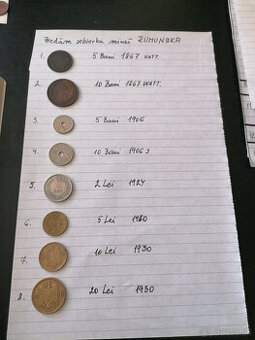 Predám zbierku mincí RUMUNSKA
1. 5 Bani 1867 WATT.
2. 10 Bani 1867 WATT.
3. 5 Bani 1906
4. 10 Bani 1906 J
5. 2 Lei 1924
6. 5 Lei 1930
7. 10 Lei 1930
8. 20 Lei 1930